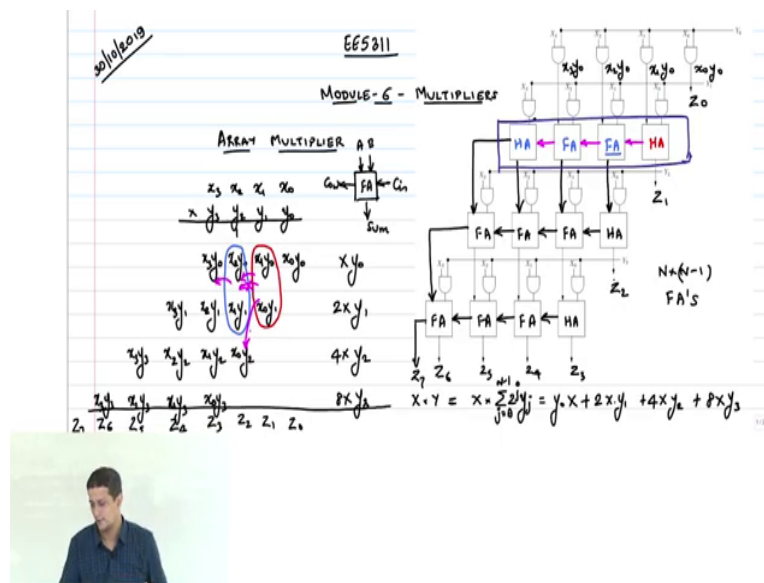 30/10/2019
EE5311
MODULE-6 - MULTIPLIERS
ARRAY MULTIPLIER
A B
Cout FA Cin
Sum
x₃ x₂ x₁ x₀
× y₃ y₂ y₁ y₀
x₃y₀ x₂y₀ x₁y₀ x₀y₀ xy₀
x₃y₁ x₂y₁ x₁y₁ x₀y₁ 2xy₁
x₃y₂ x₂y₂ x₁y₂ x₀y₂ 4xy₂
x₃y₃ x₂y₃ x₁y₃ x₀y₃ 8xy₃
Z₇ Z₆ Z₅ Z₄ Z₃ Z₂ Z₁ Z₀
x₃y₀ x₂y₀ x₁y₀ x₀y₀
Z₀
HA FA FA HA
Z₁
FA FA FA HA
Z₂
N×(N-1)
FA'S
FA FA FA HA
Z₇ Z₆ Z₅ Z₄ Z₃
X·Y = X × Σ 2ʲyⱼ = y₀X + 2x·y₁ + 4xy₂ + 8xy₃
N-1
j=0